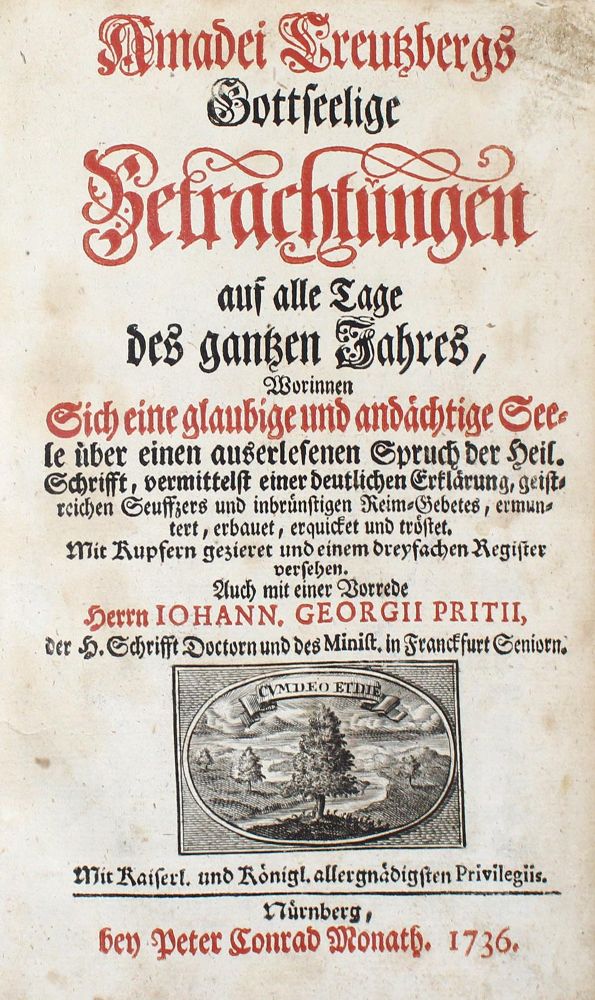 Amadei Creutzbergs
Gottseelige
Betrachtungen
auf alle Tage
des gantzen Jahres,
Worinnen
Sich eine glaubige und andächtige See-
le über einen auserlesenen Spruch der Heil.
Schrifft, vermittelst einer deutlichen Erklärung, geist-
reichen Seuffzers und inbrünstigen Reim-Gebetes, ermun-
tert, erbauet, erquicket und tröstet.
Mit Kupfern gezieret und einem dreyfachen Register
versehen.
Auch mit einer Vorrede
Herrn IOHANN. GEORGII PRITII,
der H. Schrifft Doctorn und des Minist. in Franckfurt Seniorn.
CVM DEO ET DIE
Mit Kaiserl. und Königl. allergnädigsten Privilegiis.
Nürnberg,
bey Peter Conrad Monath. 1736.